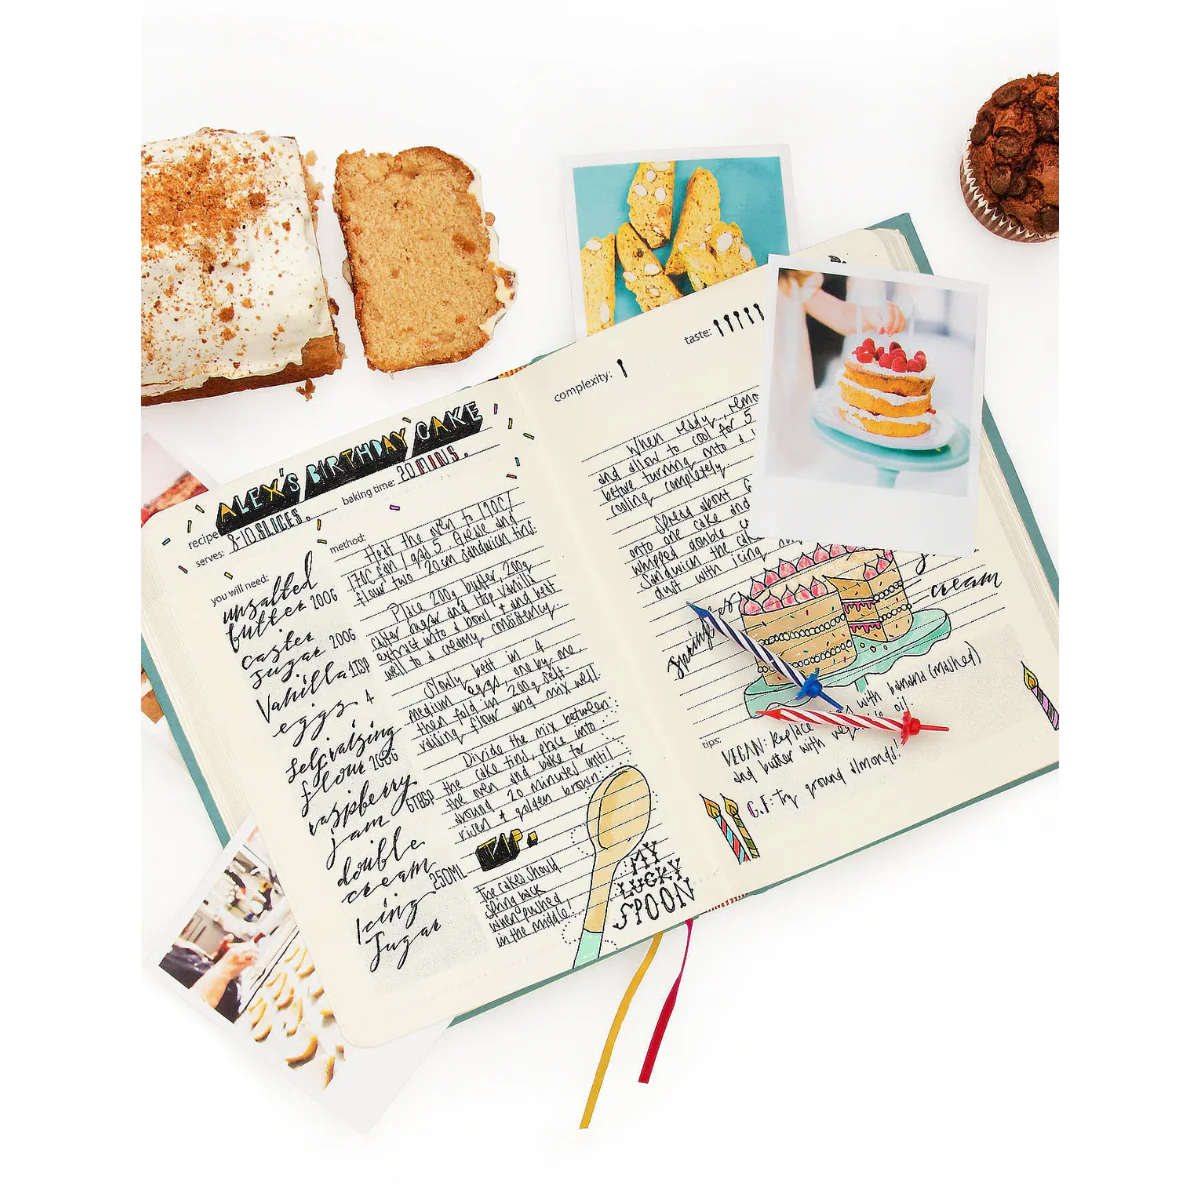 ALEX'S BIRTHDAY CAKE
recipe
serves: 8-10 SLICES.
baking time: 20 MINS.
you will need:
unsalted
butter 200G
caster
sugar 200G
Vanilla 1TSP
eggs 4
self raising
flour 200G
raspberry
jam 6TBSP
double
cream 250ML
Icing
Sugar
method:
Heat the oven to 190C/
170C fan/gas 5. Grease and
flour two 20cm sandwich tins.
Place 200g butter, 200g
caster sugar and 1tsp vanilla
extract into a bowl & and beat
well to a creamy consistency
Slowly beat in 4
medium eggs, one by one
then fold in 200g self-
raising flour and mix well.
Divide the mix between
the cake tins, place into
the oven and bake for
around 20 minutes until
risen & golden brown.
TIP:
The cakes should
spring back
when pushed
in the middle.
MY
LUCKY
SPOON
complexity:
taste:
When ready, remo
and allow to cool for 5
before turning into a
cooling completely.
Spread about
onto one cake and
whipped double
Sandwich the cak
dust with icing
cream
tips:
VEGAN: Replace with banana (mashed)
and butter with oil
G.F: Try ground almonds!